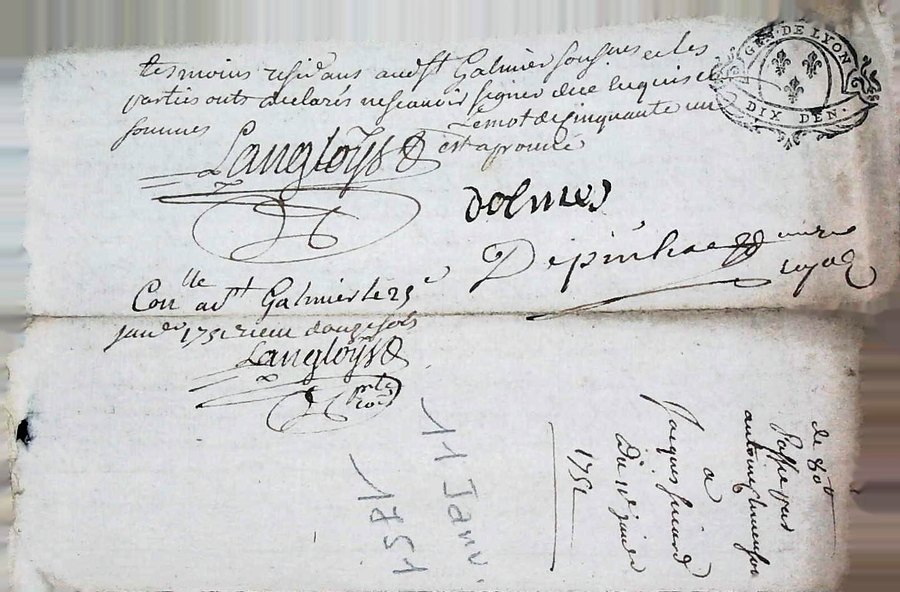 tesmoins residans audt St Galmier sousgnes et les
parties onts declarés ne scavoir signer de ce enquis et
sommes Le mot de cinquante un
est aprouvé
Langloys
dolmes
Depinha
Conlle a dt St Galmier le 25e
janer 1751 reçu douze sols
Langloys
GEN. DE LYON
DIX DEN.
11 Janv.
1751
de 80tt
Passé par
antoine
a
Jacques
Du 11e janvier
1751